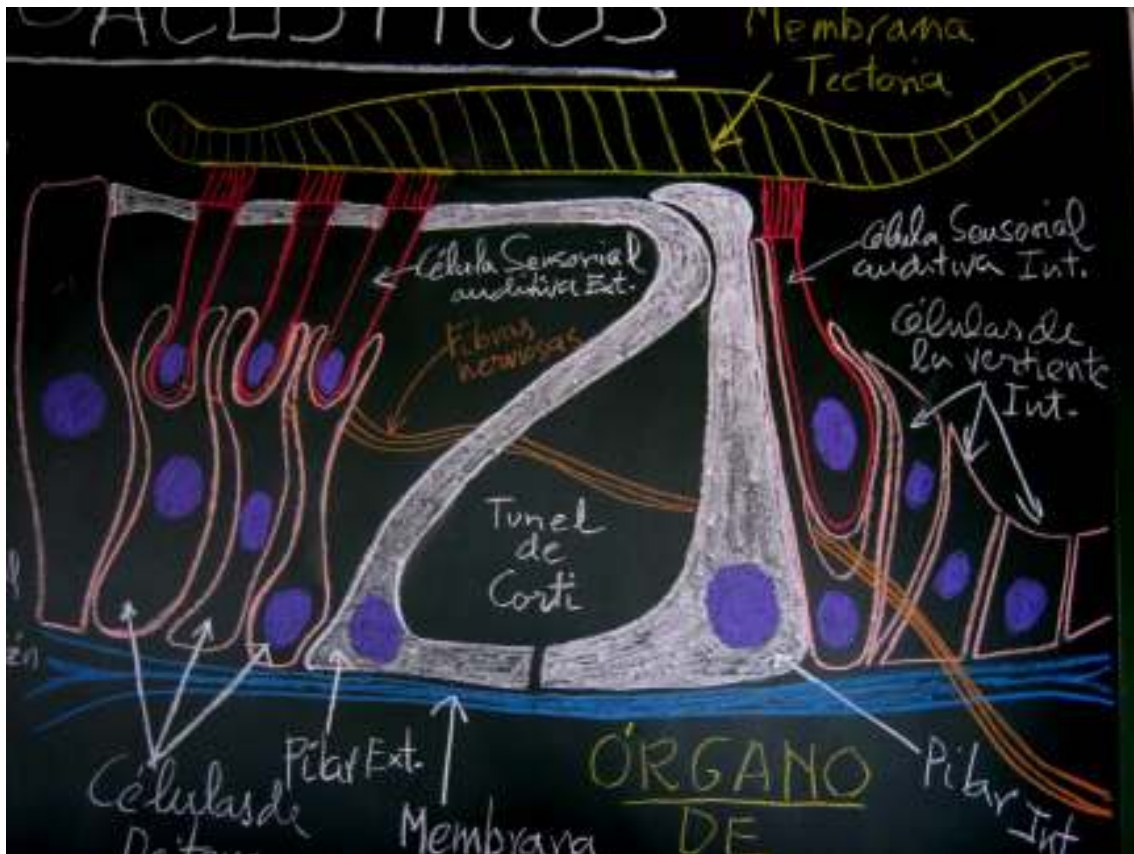 ACÚSTICOS
Membrana
Tectoria
Célula Sensorial
auditiva Ext.
Célula Sensorial
auditiva Int.
Fibras
nerviosas
Células de
la vertiente
Int.
Tunel
de
Corti
Pilar Ext.
Células de
Membrana
ÓRGANO
DE
Pilar Int